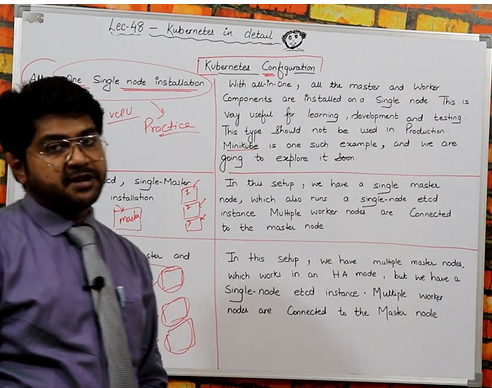 Lec-48 - Kubernetes in detail
Kubernetes Configuration
All One Single node installation
vCPU
Practice
With all-in-One, all the master and Worker
Components are installed on a Single node This is
very useful for learning, development and testing.
This type Should not be used in Production
Minikube is one such example, and we are
going to explore it soon.
cd, single-Master
installation
master
1
2
3
In this setup, we have a single master
node, which also runs a single-node etcd
instance Multiple worker nodes are Connected
to the master node
ster and
In this setup, we have multiple master nodes,
which works in an HA mode, but we have a
Single-node etcd instance. Multiple worker
nodes are Connected to the Master node